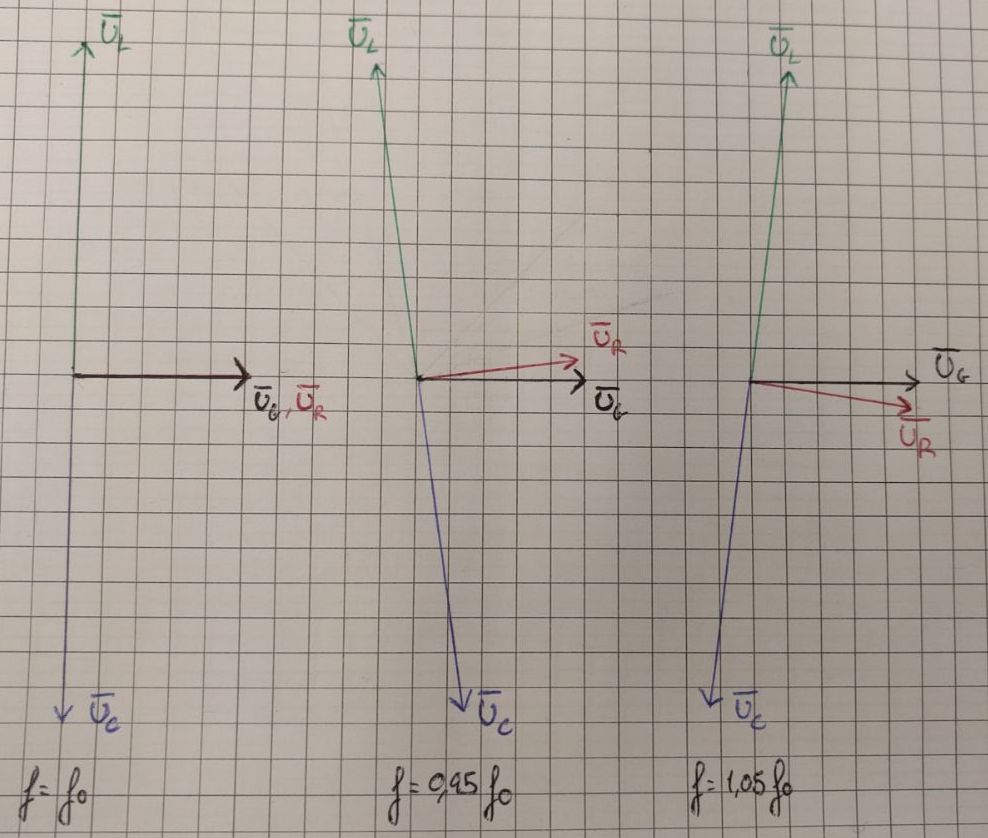 U̅_L
U̅_G, U̅_R
U̅_C
f = f₀
U̅_L
U̅_R
U̅_G
U̅_C
f = 0,95 f₀
U̅_L
U̅_G
U̅_R
U̅_C
f = 1,05 f₀